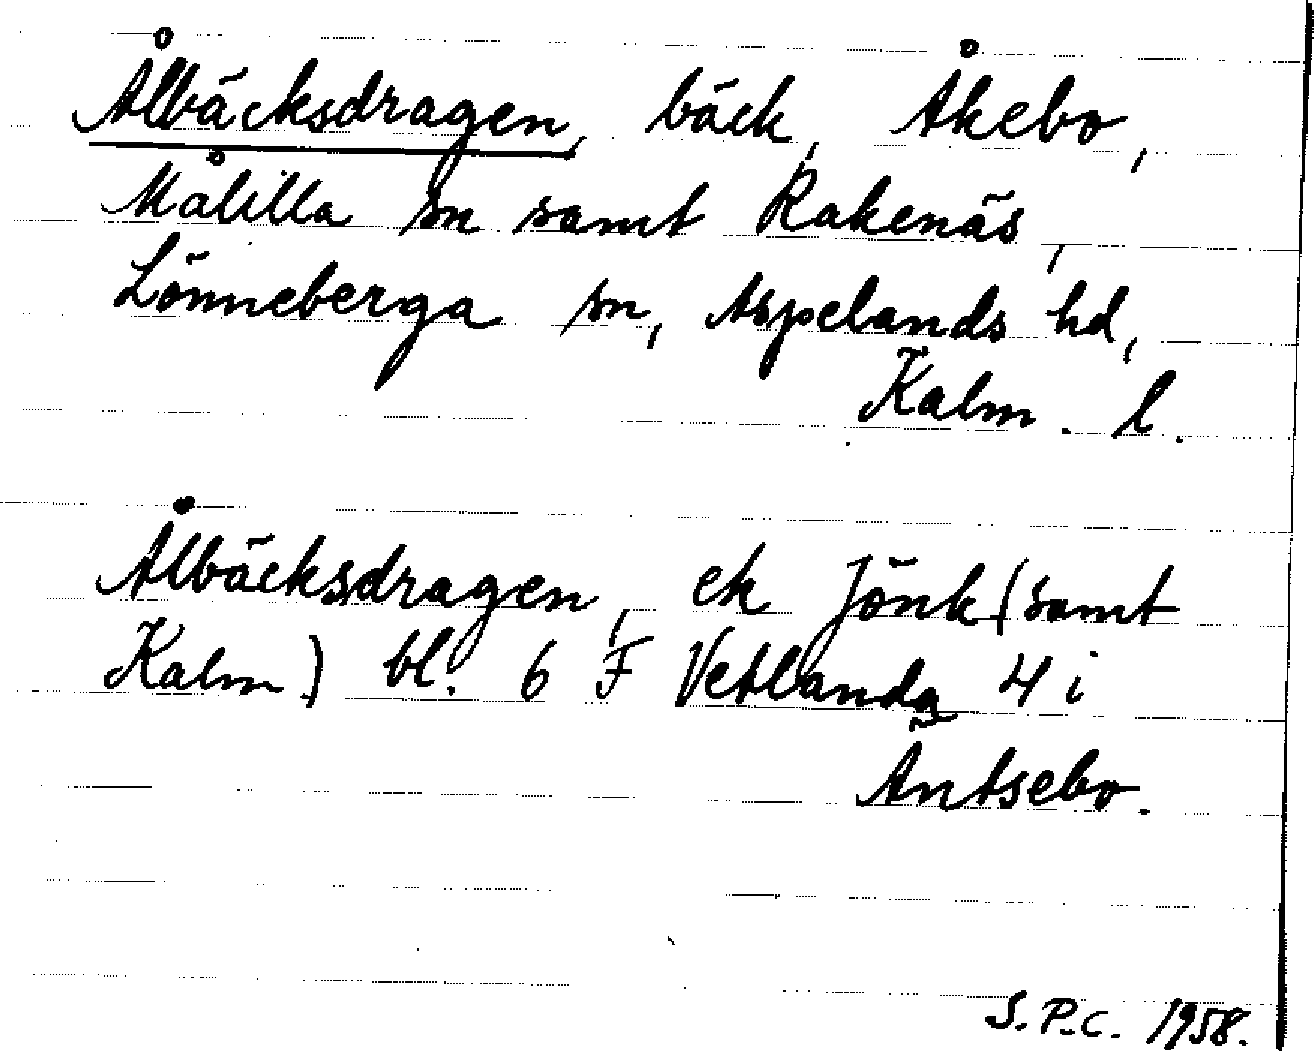 Ålbäcksdragen, bäck, Åkebo,
Målilla sn samt Rakenäs,
Lönneberga sn, Aspelands hd,
Kalm. l.
Ålbäcksdragen, ek Jönk (samt
Kalm) bl. 6 F Vetlanda 4 i
Äntsebo.
S.P.C. 1958.